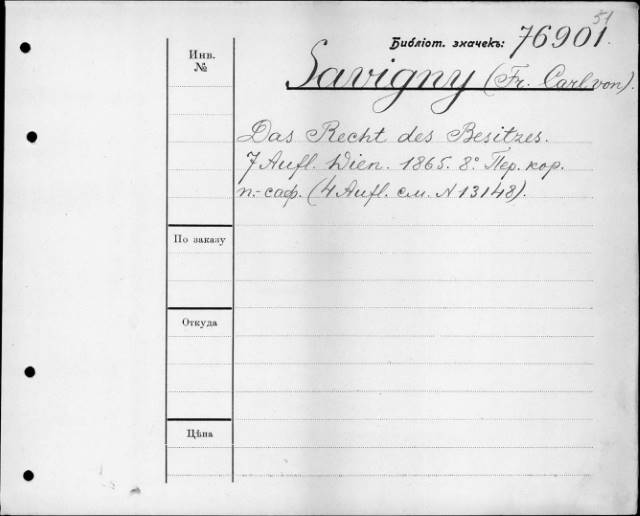 51
Библіот. значекъ: 76901.
Инв.
№
Savigny (Fr. Carl von).
Das Recht des Besitzes.
7 Aufl. Wien. 1865. 8° Пер. кор.
п.-саф. (4 Aufl. см. N 13148).
По заказу
Откуда
Цѣна